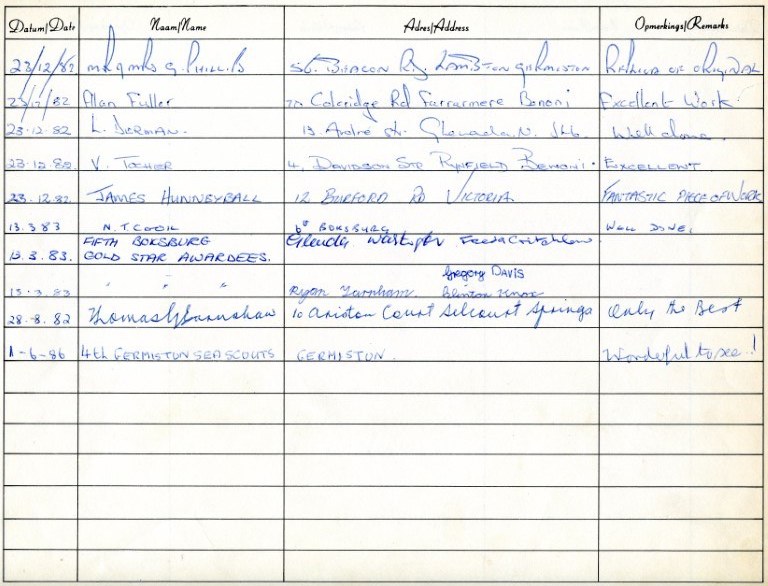 Datum/Date Naam/Name Adres/Address Opmerkings/Remarks
23/12/82 Mr & Mrs G. Phillis St. Beacon Rd. Lambton Germiston of Original
23/12/82 Alan Fuller 70 Coleridge Rd Farrarmere Benoni Excellent Work
23.12.82 L. Derman. 13 André Str. Glenada N. Jhb. Well done.
23.12.82. V. Tocher 4, Davidson Str Rynfield Benoni. Excellent
23.12.82. JAMES HUNNEYBALL 12 BURFORD RD VICTORIA FANTASTIC PIECE OF WORK
13.3.83 N.T. COOK 6th BOKSBURG WELL DONE.
FIFTH BOKSBURG Glenda
13.3.83. GOLD STAR AWARDEES.
Gregory DAVIS
13.3.83 " " " Ryan Farnham. Clinton Knox
28-8-82 Thomas 10 Ariston Court Selcourt Springs Only the Best
1-6-86 4th GERMISTON SEA SCOUTS GERMISTON. Wonderful to see!